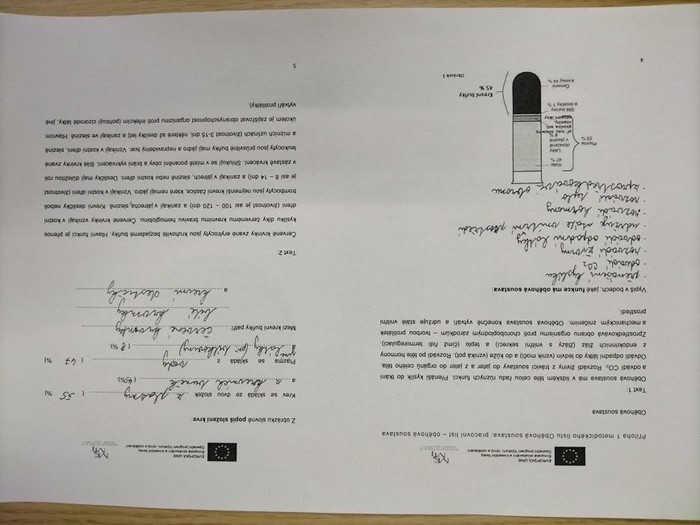 EVROPSKÁ UNIE
Evropské strukturální a investiční fondy
Operační program Výzkum, vývoj a vzdělávání
Příloha 1 metodického listu Oběhová soustava: pracovní list – oběhová soustava
Oběhová soustava
Text 1:
Oběhová soustava má v lidském těle celou řadu různých funkcí. Přenáší kyslík do tkání
a odvádí CO₂. Rozvádí živiny z trávicí soustavy do jater a z jater do orgánů celého těla.
Odvádí odpadní látky do ledvin (vznik moči) a do kůže (vznik potu). Rozvádí po těle hormony
z endokrinních žláz (žlázy s vnitřní sekrecí) a teplo (čímž řídí termoregulaci).
Zprostředkovává obranu organismu proti choroboplodným zárodkům – tvorbou protilátek
a mechanickým zničením. Oběhová soustava konečně vytváří a udržuje stálé vnitřní
prostředí.
Vypiš v bodech, jaké funkce má oběhová soustava:
- přenášení kyslíku
- odvádí CO₂
- rozvádí živiny
- odvádí odpadní látky
- udržuje stálé vnitřní prostředí
- rozvádí hormony
- rozvádí teplo
- zprostředkovává obranu
Plazma
55 %
Voda
47 %
Látky
obsažené
v plazmě
8 %
Bílé krvinky
a destičky 1 %
Červené
krvinky 44 %
Krevní buňky
45 %
Obrázek 1
4
EVROPSKÁ UNIE
Evropské strukturální a investiční fondy
Operační program Výzkum, vývoj a vzdělávání
Z obrázku slovně popiš složení krve:
Krev se skládá ze dvou složek z plazmy ( 55 %)
a z krevních buněk (45%)
Plazma se skládá z vody ( 47 %)
a látky (8 %)
Mezi krevní buňky patří: červené krvinky
bílé krvinky
a krevní destičky
Text 2:
Červené krvinky zvané erytrocyty jsou kruhovité bezjaderné buňky. Hlavní funkcí je přenos
kyslíku díky červenému krevnímu barvivu hemoglobinu. Červené krvinky vznikají v kostní
dřeni (životnost je asi 100 – 120 dní) a zanikají v játrech a slezině. Krevní destičky neboli
trombocyty jsou nejmenší krevní částice, které nemají jádro. Vznikají v kostní dřeni (životnost
je asi 8 – 14 dní) a zanikají v játrech, slezině nebo kostní dřeni. Destičky mají důležitou roli
v zástavě krvácení. Shlukují se v místě poranění cévy a brání vykrvácení. Bílé krvinky zvané
leukocyty jsou průsvitné buňky mají jádro a nepravidelný tvar. Vznikají v kostní dřeni, slezině
a mízních uzlinách (životnost 3-15 dní, některé až desítky let) a zanikají ve slezině. Hlavním
úkolem je zajišťovat obranyschopnost organizmu proti infekcím (pohlcují cizorodé látky, jiné
vytváří protilátky).
5